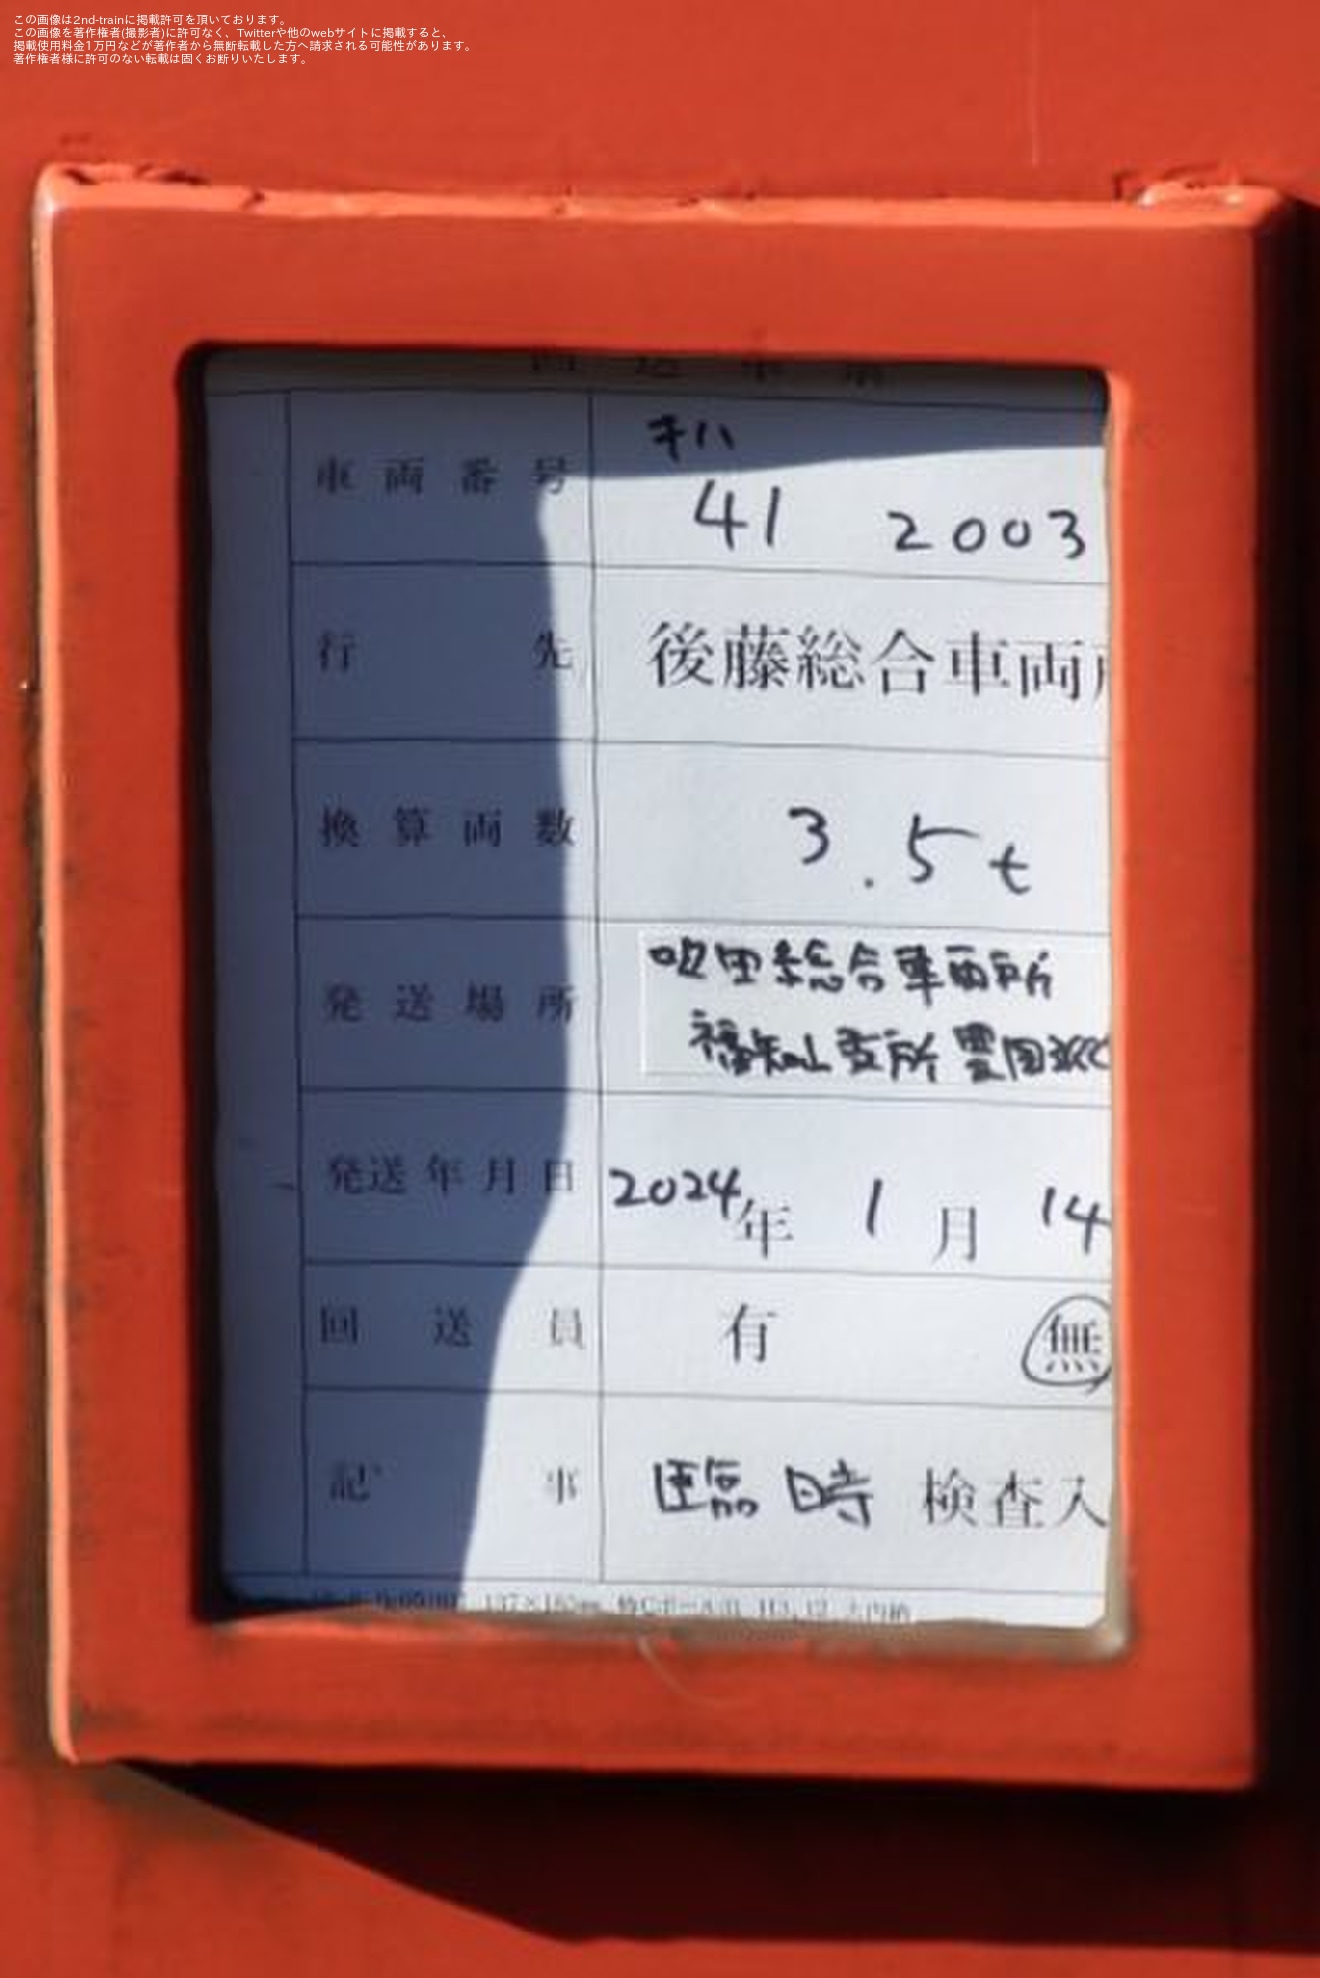 この画像は2nd-trainに掲載許可を頂いております。
この画像を著作権者(撮影者)に許可なく、Twitterや他のwebサイトに掲載すると、
掲載使用料金1万円などが著作者から無断転載した方へ請求される可能性があります。
著作権者様に許可のない転載は固くお断りいたします。
車両番号 キハ
41 2003
行先 後藤総合車両
換算両数 3.5t
発送場所 吹田総合車両所
福知山支所豊岡
発送年月日 2024年 1月 14
回送員 有 無
記事 臨時 検査入